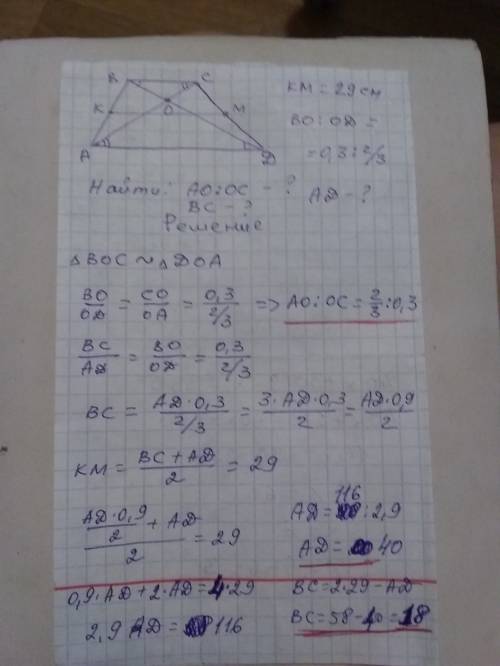 B C
K O M
A D
KM = 29 см
BO : OD =
= 0,3 : 2/3
Найти: AO : OC - ? AD - ?
BC - ?
Решение
△BOC ~ △DOA
BO/OD = CO/OA = 0,3/2/3 => AO : OC = 2/3 : 0,3
BC/AD = BO/OD = 0,3/2/3
BC = AD·0,3/2/3 = 3·AD·0,3/2 = AD·0,9/2
KM = BC + AD/2 = 29
AD·0,9/2 + AD/2 = 29
0,9·AD + 2·AD = 4·29
2,9 AD = 116
AD = 116 : 2,9
AD = 40
BC = 2·29 - AD
BC = 58 - 40 = 18